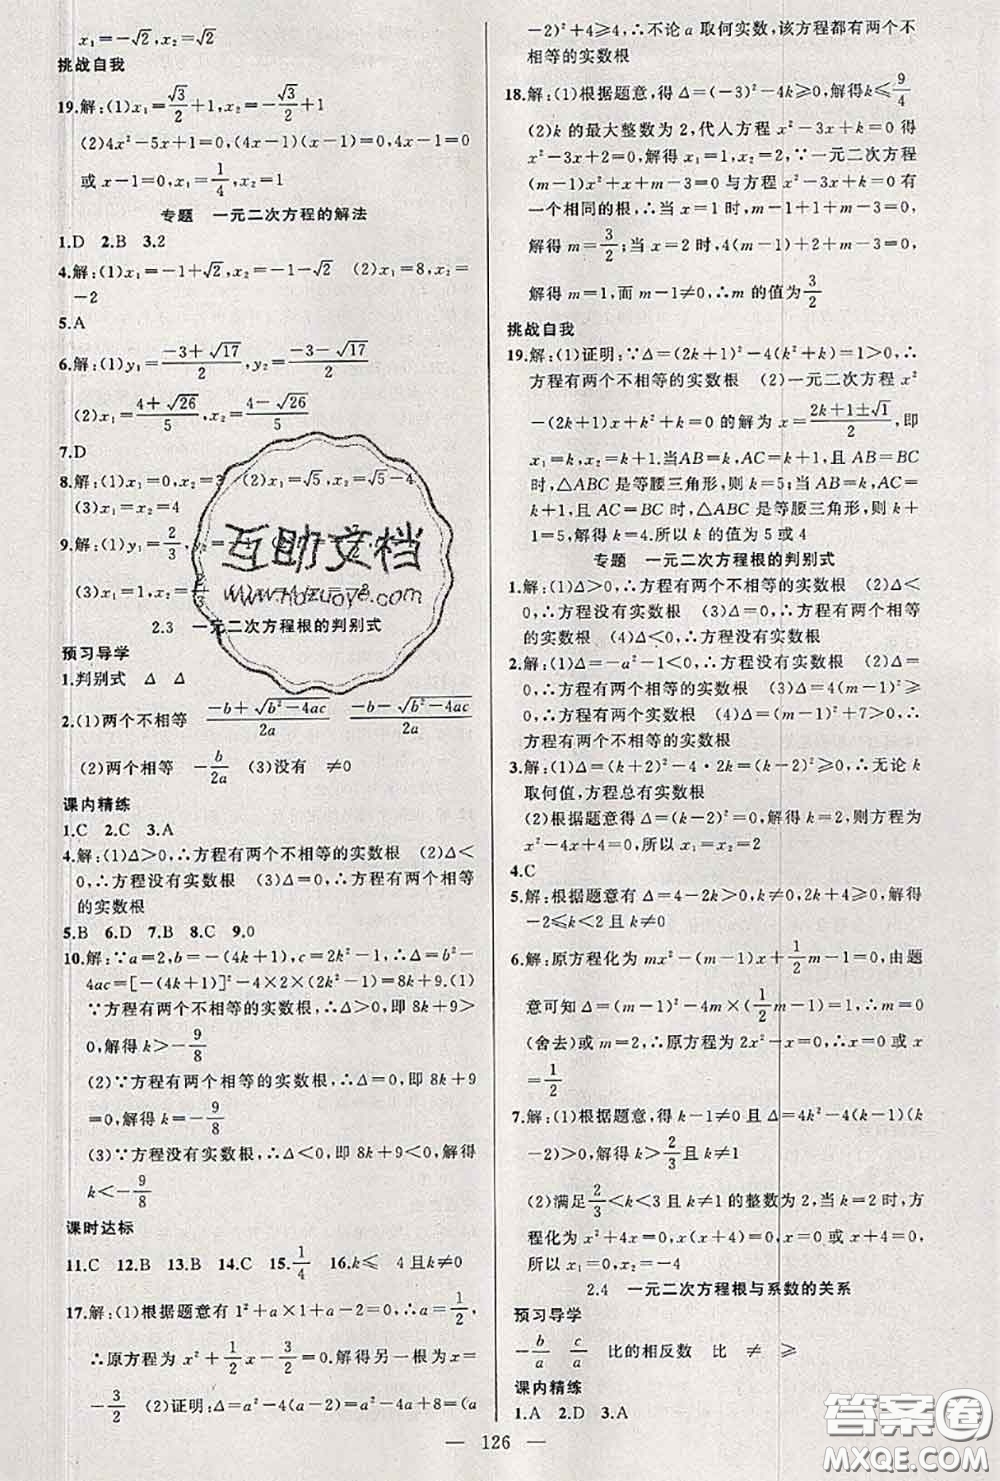 x₁=－√2,x₂=√2
挑战自我
19.解:(1)x₁=√3/2+1,x₂=－√3/2+1
(2)4x²－5x+1=0,(4x－1)(x－1)=0,4x－1=0
或x－1=0,x₁=1/4,x₂=1
专题 一元二次方程的解法
1.D 2.B 3.2
4.解:(1)x₁=－1+√2,x₂=－1－√2 (2)x₁=8,x₂=
－2
5.A
6.解:(1)y₁=(－3+√17)/2,y₂=(－3－√17)/2
(2)x₁=(4+√26)/5,x₂=(4－√26)/5
7.D
8.解:(1)x₁=0,x₂=3 (2)x₁=√5,x₂=√5－4
(3)x₁=x₂=4
9.解:(1)y₁=2/3,y₂=
(3)x₁=1,x₂=
2.3 一元二次方程根的判别式
预习导学
1.判别式 Δ Δ
2.(1)两个不相等 (－b+√(b²－4ac))/2a (－b－√(b²－4ac))/2a
(2)两个相等 －b/2a (3)没有 ≠0
课内精练
1.C 2.C 3.A
4.解:(1)Δ>0,∴方程有两个不相等的实数根 (2)Δ<
0,∴方程没有实数根 (3)Δ=0,∴方程有两个相等
的实数根
5.B 6.D 7.B 8.C 9.0
10.解:∵a=2,b=－(4k+1),c=2k²－1,∴Δ=b²－
4ac=[－(4k+1)]²－4×2×(2k²－1)=8k+9.(1)
∵方程有两个不相等的实数根,∴Δ>0,即8k+9>
0,解得k>－9/8
(2)∵方程有两个相等的实数根,∴Δ=0,即8k+9
=0,解得k=－9/8
(3)∵方程没有实数根,∴Δ<0,即8k+9<0,解得
k<－9/8
课时达标
11.C 12.B 13.B 14.C 15.1/4 16.k≤ 4且k≠0
17.解:(1)根据题意有1²+a×1+a－2=0,∴a=1/2,
∴原方程为x²+1/2x－3/2=0,解得另一根为x=
－3/2 (2)证明:Δ=a²－4(a－2)=a²－4a+8=(a
－2)²+4≥4,∴不论a取何实数,该方程都有两个不
相等的实数根
18.解:(1)根据题意,得Δ=(－3)²－4k≥0,解得k≤9/4
(2)k的最大整数为2,代人方程x²－3x+k=0得
x²－3x+2=0,解得x₁=1,x₂=2,∵一元二次方程
(m－1)x²+x+m－3=0与方程x²－3x+k=0有
一个相同的根,∴当x=1时,m－1+1+m－3=0,
解得m=3/2;当x=2时,4(m－1)+2+m－3=0,
解得m=1,而m－1≠0,∴m的值为3/2
挑战自我
19.解:(1)证明:∵Δ=(2k+1)²－4(k²+k)=1>0,∴
方程有两个不相等的实数根 (2)一元二次方程x²
－(2k+1)x+k²+k=0的解为x=(2k+1±√1)/2,即
x₁=k,x₂=k+1.当AB=k,AC=k+1,且AB=BC
时,△ABC是等腰三角形,则k=5;当AB=k,AC=k
+1,且AC=BC时,△ABC是等腰三角形,则k+
1=5,解得k=4.所以k的值为5或4
专题 一元二次方程根的判别式
1.解:(1)Δ>0,∴方程有两个不相等的实数根 (2)Δ<
0,∴方程没有实数根 (3)Δ=0,∴方程有两个相等
的实数根 (4)Δ<0,∴方程没有实数根
2.解:(1)Δ=－a²－1<0,∴方程没有实数根 (2)Δ=
0,∴方程有两个相等的实数根 (3)Δ=4(m－1)²≥
0,∴方程有两个实数根 (4)Δ=(m－1)²+7>0,∴
方程有两个不相等的实数根
3.解:(1)Δ=(k+2)²－4·2k=(k－2)²≥0,∴无论k
取何值,方程总有实数根
(2)根据题意得Δ=(k－2)²=0,解得k=2,∴方程为
x²－4x+4=0,所以x₁=x₂=2
4.C
5.解:根据题意有Δ=4－2k>0,k≠0,2k+4≥0,解得
－2≤k<2且k≠0
6.解:原方程化为mx²－(m－1)x+1/2m－1=0,由题
意可知Δ=(m－1)²－4m×(1/2m－1)=1,∴m=0
(舍去)或m=2,∴原方程为2x²－x=0,∴x=0或x
=1/2
7.解:(1)根据题意,得k－1≠0且Δ=4k²－4(k－1)(k
－2)>0,解得k>2/3且k≠1
(2)满足2/3<k<3且k≠1的整数为2,当k=2时,方
程化为x²+4x=0,x(x+4)=0,x=0或x+4=0,
所以x₁=0,x₂=－4
2.4 一元二次方程根与系数的关系
预习导学
－b/a c/a 比的相反数 比 ≠ ≥
课内精练
1.A 2.D 3.A
— 126 —
互助文档
www.Hdzuoye.com
答案圈
MXQE.COM